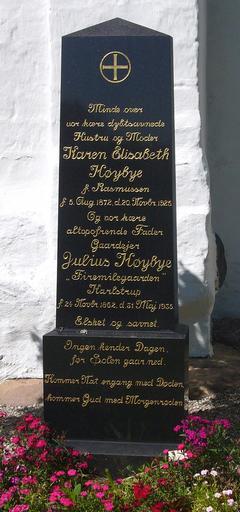 Minde over
vor kære dybtsavnede
Hustru og Moder
Karen Elisabeth
Høybye
f. Rasmussen
f. 5. Aug. 1872, d. 20. Novbr. 1925.
Og vor kære
altopofrende Fader
Gaardejer
Julius Høybye
"Firemilegaarden"
Karlstrup
f. 21. Novbr. 1862, d. 31. Maj 1935.
Elsket og savnet.
Ingen kender Dagen,
før Solen gaar ned.
Kommer Nat engang med Døden,
kommer Gud med Morgenrøden